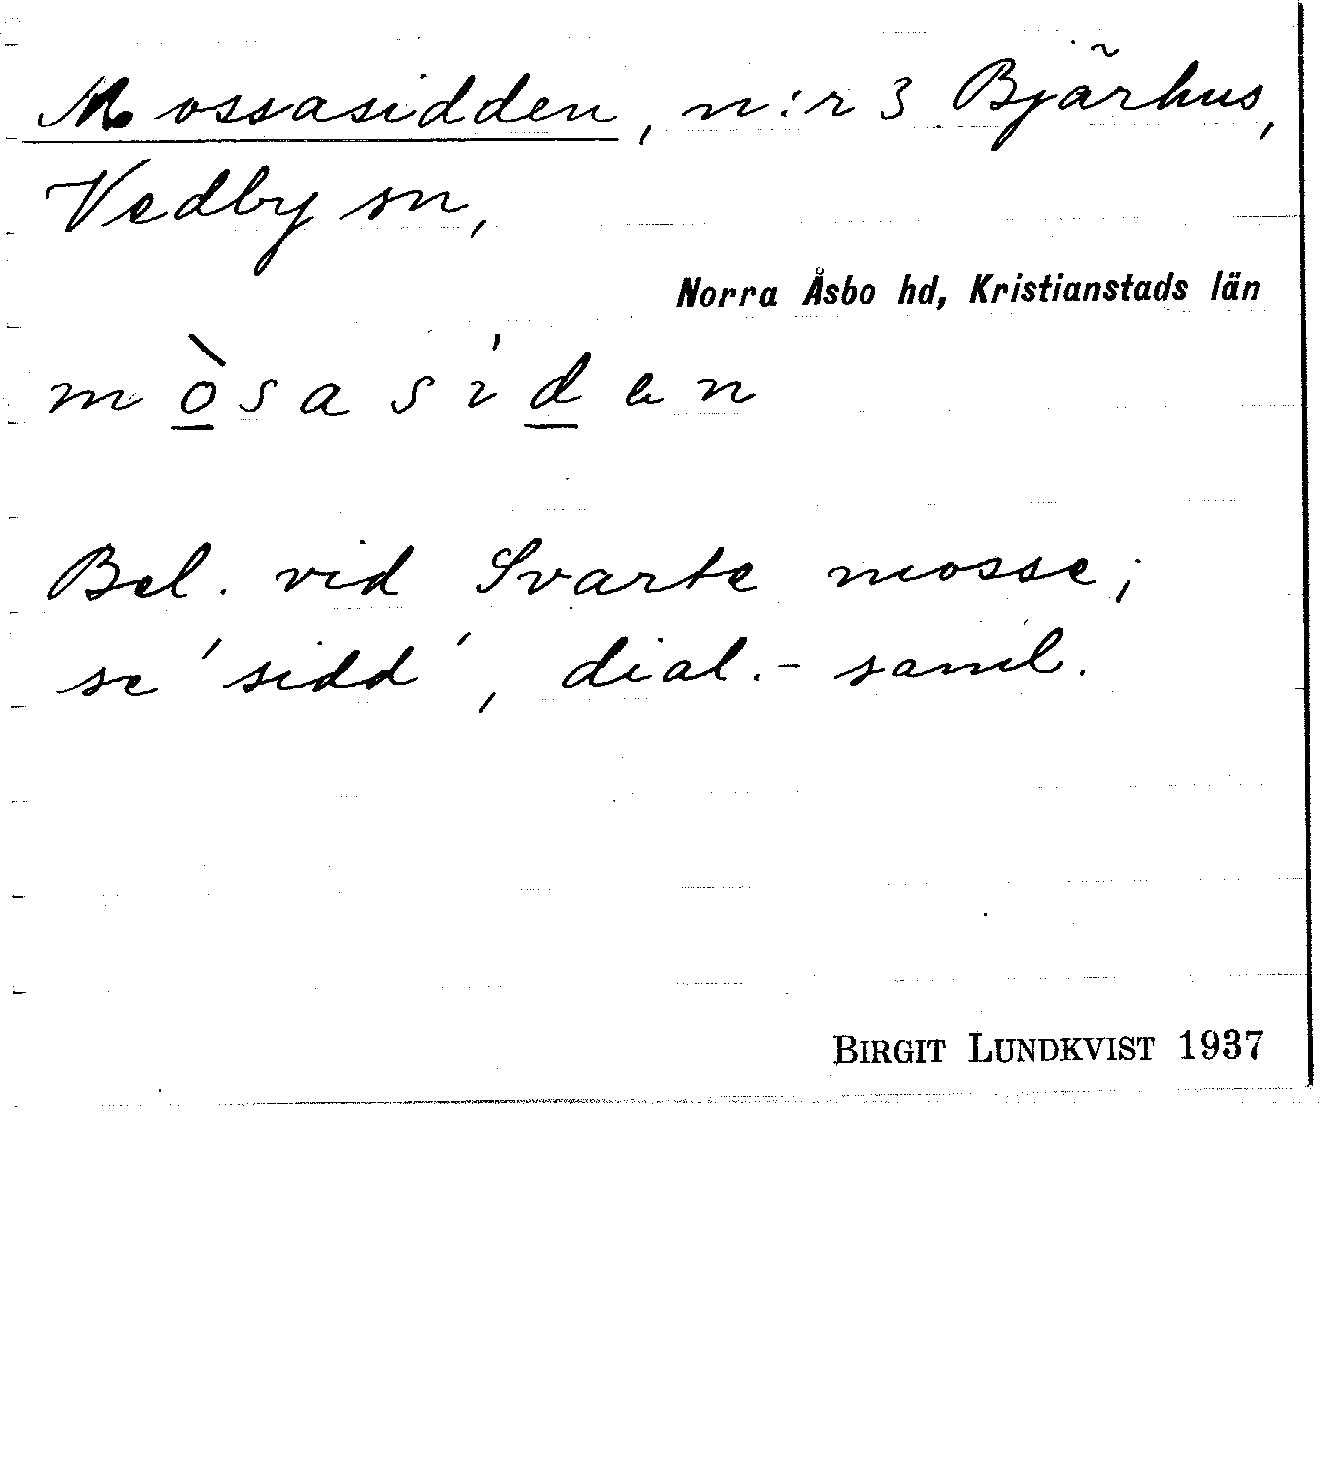 Mossasidden, n:r 3 Bjärhus,
Vedby sn,
Norra Åsbo hd, Kristianstads län
mòsasíden
Bel. vid Svarte mosse;
se 'sidd', dial.-saml.
BIRGIT LUNDKVIST 1937